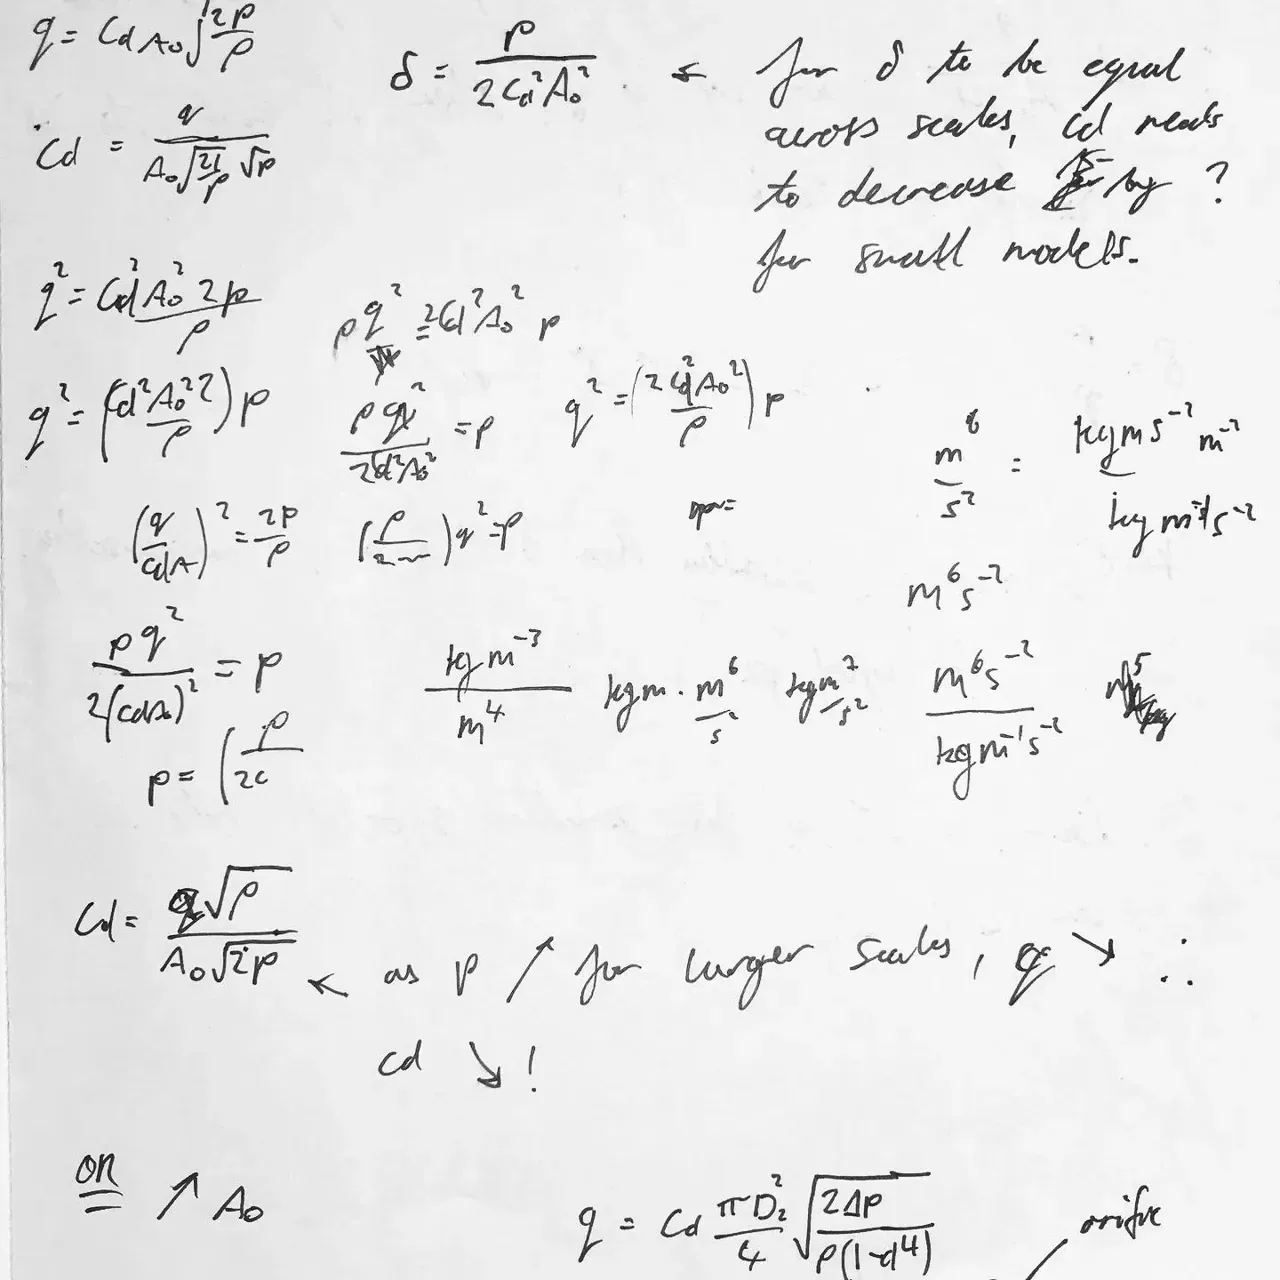 q = Cd A₀ √(2p/ρ)
δ = ρ / (2Cd²A₀²) ← for δ to be equal
across scales, Cd needs
to decrease by ?
for small models.
Cd = q / (A₀ √(2/ρ) √p)
q² = Cd² A₀² 2p / ρ
ρq² = 2Cd² A₀² p
q² = (Cd² A₀² 2 / ρ) p
ρq² / (2Cd²A₀²) = p
q² = (2Cd²A₀² / ρ) p
m⁶ / s² = kg m s⁻² m⁻² / kg m⁻¹ s⁻²
(q / CdA)² = 2p / ρ
(ρ / 2~) q² = p
m⁶ s⁻²
ρq² / 2(CdA₀)² = p
kg m⁻³ / m⁴
kg m · m⁶ / s²
kg m⁷ / s²
m⁶ s⁻² / kg m⁻¹ s⁻²
p = (ρ / 2C
Cd = q√ρ / (A₀ √2p)
← as p ↗ for larger scales, q ↘ ∴
Cd ↘ !
OR ↗ A₀
q = Cd πD₂² / 4 √(2Δp / ρ(1-d⁴))